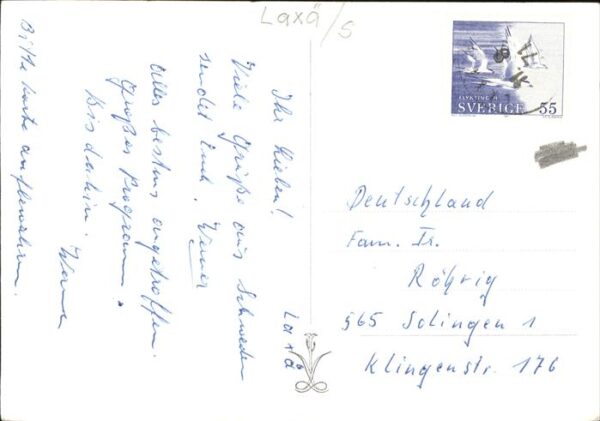 Laxå/S
Laxå
Ihr Lieben!
Viele Grüße aus Schweden
sendet Euch. Werner
Alles bestens angetroffen.
Großes Programm.
Bis dahin.
Werner
Bitte Karte aufbewahren.
SVERIGE 55
Deutschland
Fam. Fr.
Röhrig
565 Solingen 1
Klingenstr. 176